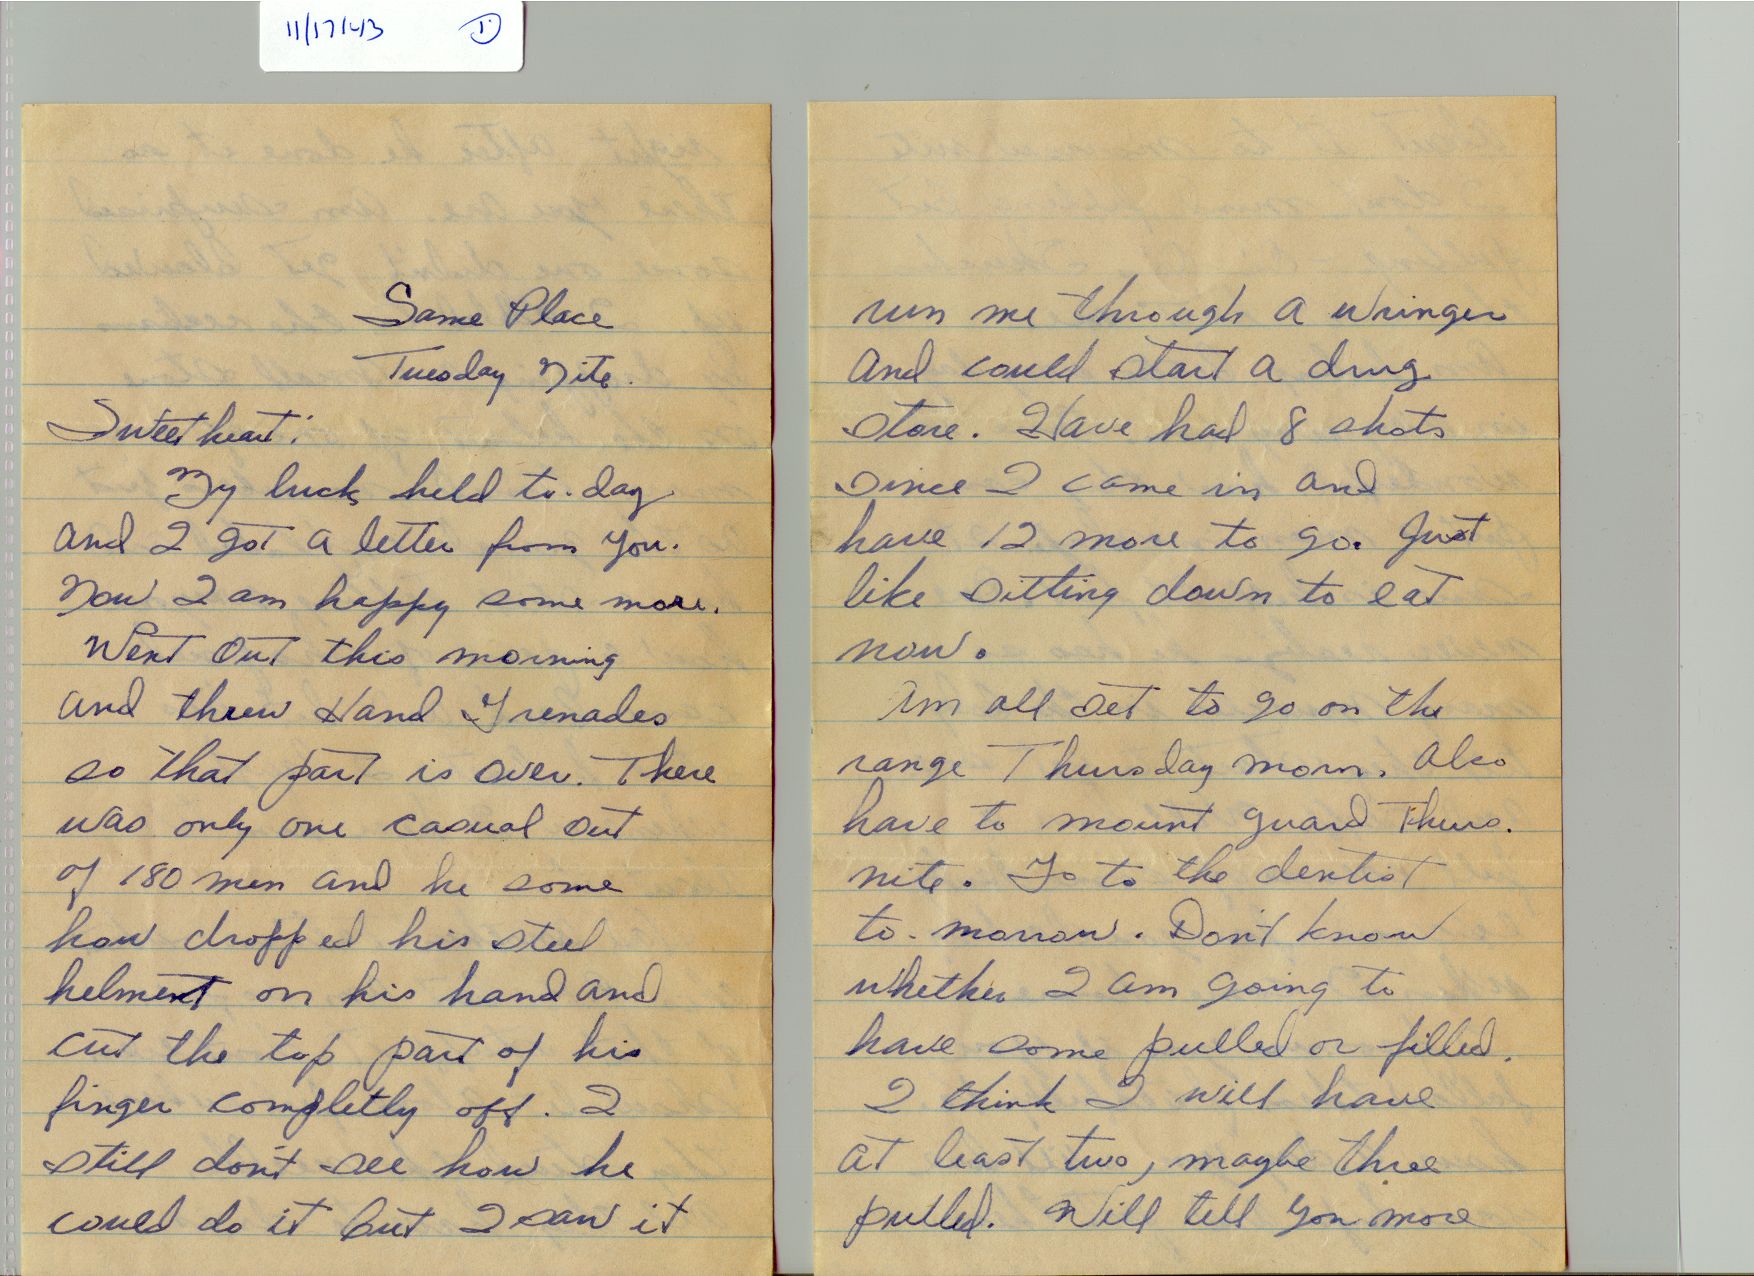 11/17/43 1
Same Place
Tuesday Nite.
Sweetheart:
My luck held to-day
and I got a letter from you.
Now I am happy some more.
Went out this morning
and threw Hand Grenades
so that part is over. There
was only one casual out
of 180 men and he some
how dropped his steel
helment on his hand and
cut the top part of his
finger completly off. I
still don't see how he
could do it but I saw it
run me through a wringer
and could start a drug
store. Have had 8 shots
since I came in and
have 12 more to go. Just
like sitting down to eat
now.
Am all set to go on the
range Thursday morn. Also
have to mount guard Thurs.
nite. Go to the dentist
to-morrow. Don't know
whether I am going to
have some pulled or filled.
I think I will have
at least two, maybe three
pulled. Will tell you more